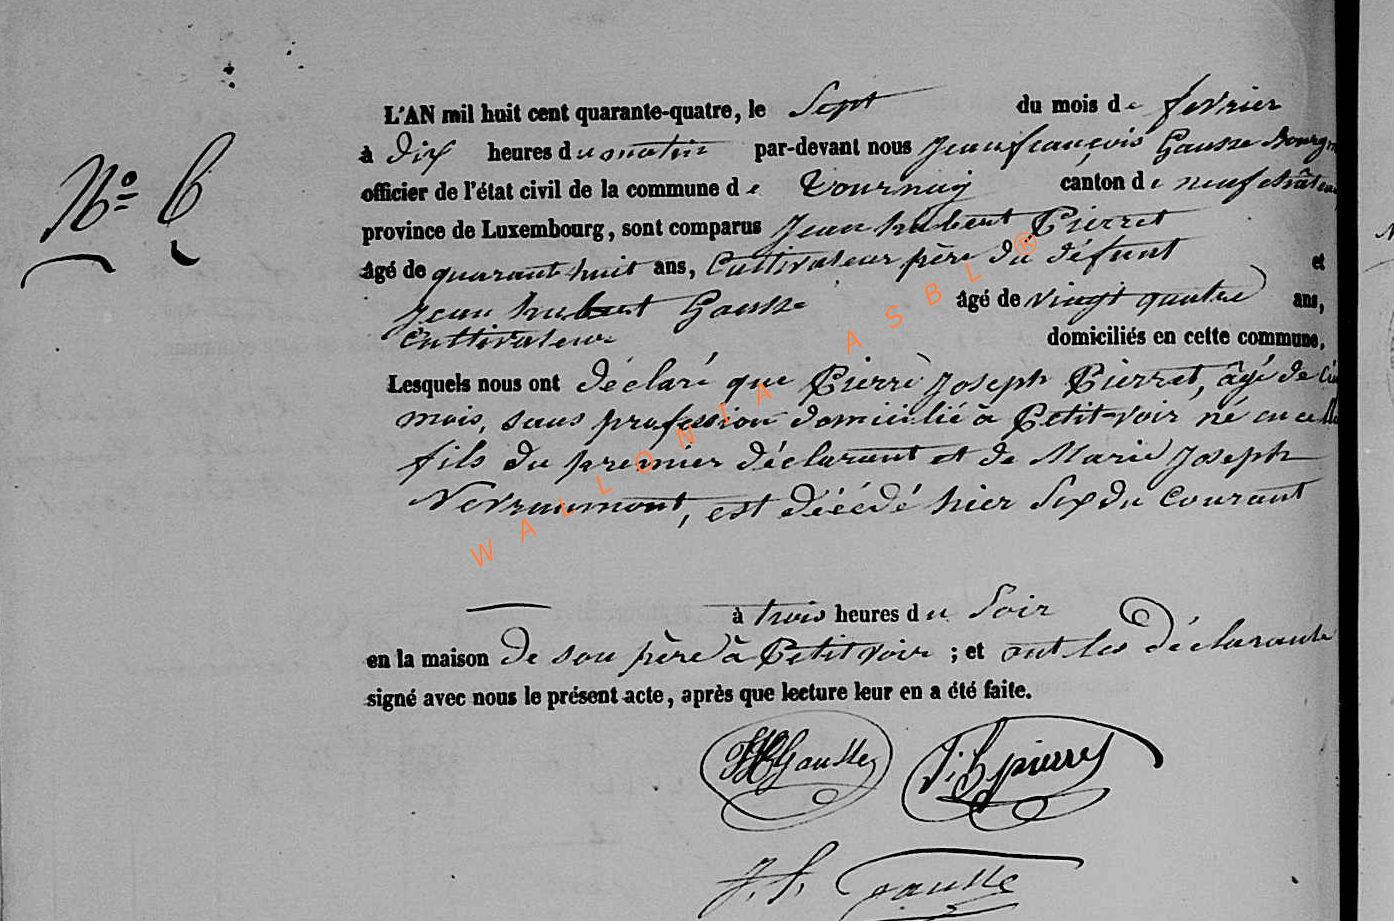 L'AN mil huit cent quarante-quatre, le Sept du mois de fevrier
à Dix heures du matin par-devant nous Jean françois Gausse Bourgm
officier de l'état civil de la commune de Tournay canton de neufchâteau
province de Luxembourg, sont comparus Jean hubert Pierret
âgé de quarant huit ans, Cultivateur père du défunt et
Jean hubert Gausse âgé de vingt quatre ans,
Cultivateur domiciliés en cette commune,
Lesquels nous ont déclaré que Pierre Joseph Pierret, âgé de
mois, sans profession domicilié à Petitvoir né en celle
fils du premier déclarant et de Marie Joseph
Nevraumont, est décédé hier Six du Courant
à trois heures du Soir
en la maison de son père à Petitvoir ; et ont les déclarants
signé avec nous le présent acte, après que lecture leur en a été faite.
N° 6
JH Gausse J. h pierret
J. f. Gausse
WALLONIA ASBL ®